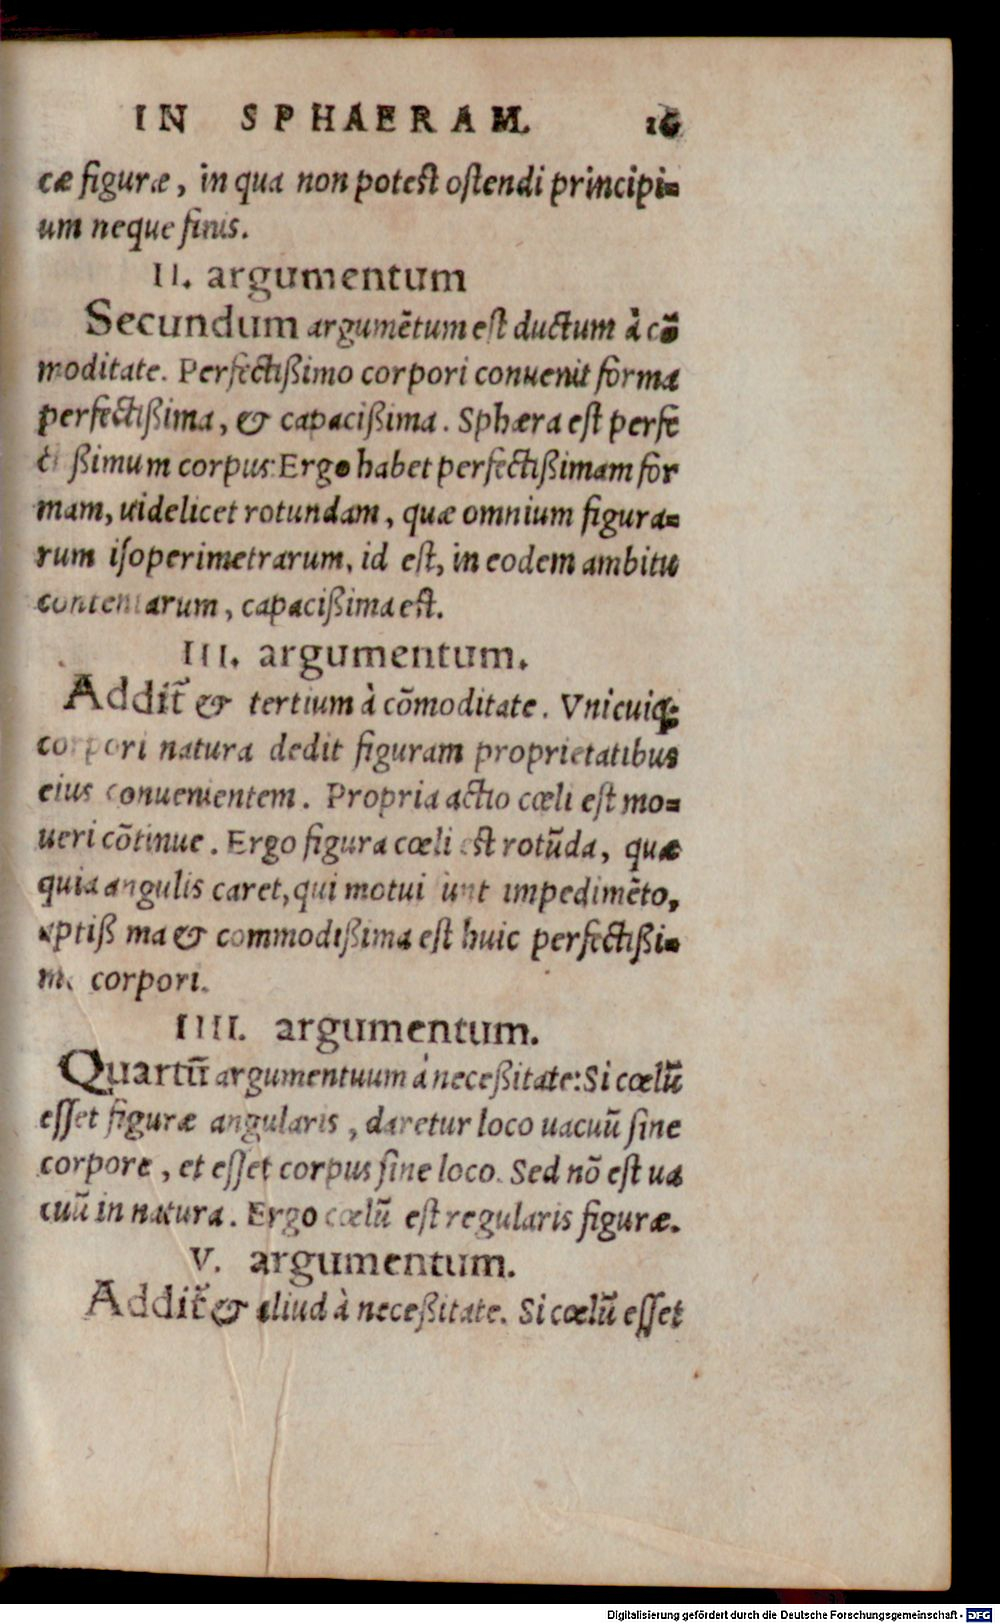 IN SPHAERAM. 16
cæ figuræ, in qua non potest ostendi principi=
um neque finis.
II. argumentum
Secundum argumẽtum est ductum à cõ
moditate. Perfectißimo corpori conuenit forma
perfectißima, & capacißima. Sphæra est perfe
cti ßimum corpus: Ergo habet perfectißimam for
mam, uidelicet rotundam, quæ omnium figura=
rum isoperimetrarum, id est, in eodem ambitu
contentarum, capacißima est.
III. argumentum.
Addit̃ & tertium à cõmoditate. Vnicuiq;
corpori natura dedit figuram proprietatibus
eius conuenientem. Propria actio cœli est mo=
ueri cõtinue. Ergo figura cœli est rotũda, quæ
quia angulis caret, qui motui sunt impedimẽto,
aptißima & commodißima est huic perfectißi=
mo corpori.
IIII. argumentum.
Quartũ argumentuum à neceßitate: Si cœlũ
esset figuræ angularis, daretur loco uacuũ sine
corpore, et esset corpus sine loco. Sed nõ est ua
cuũ in natura. Ergo cœlũ est regularis figuræ.
V. argumentum.
Addit̃ & aliud à neceßitate. Si cœlũ esset
Digitalisierung gefördert durch die Deutsche Forschungsgemeinschaft - DFG